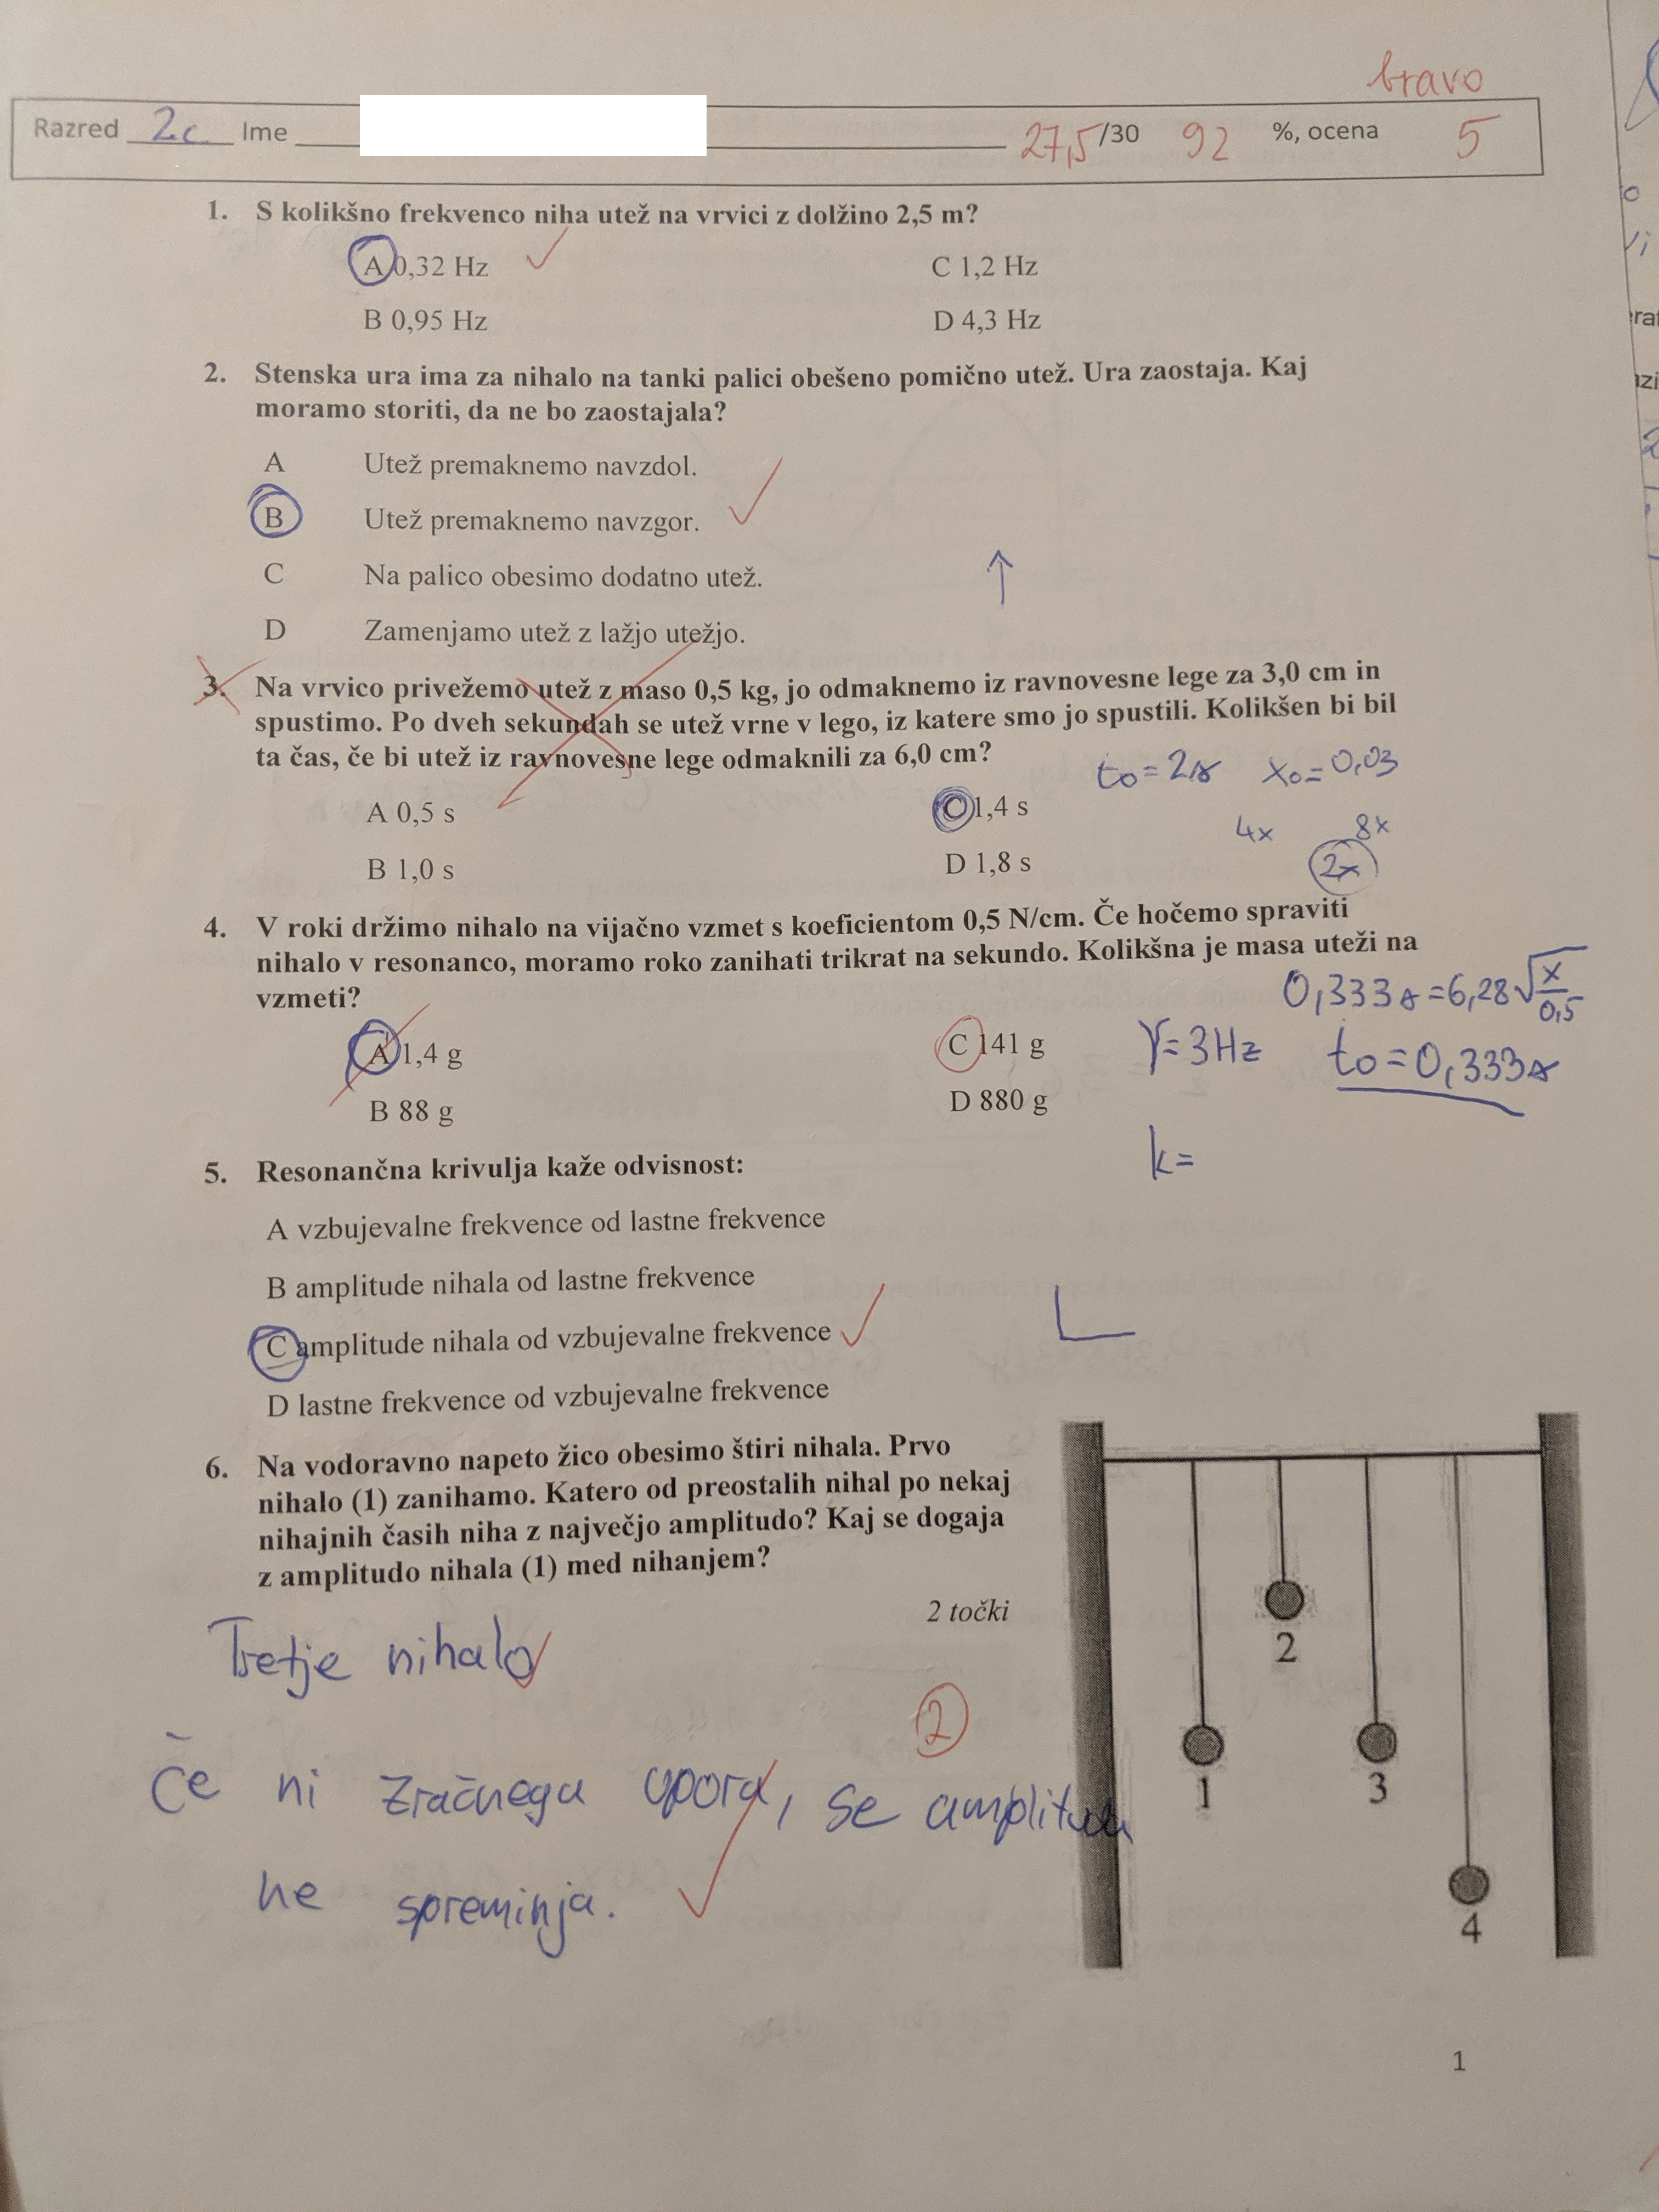 bravo
Razred 2c Ime 27,5/30 92 %, ocena 5
1. S kolikšno frekvenco niha utež na vrvici z dolžino 2,5 m?
A 0,32 Hz C 1,2 Hz
B 0,95 Hz D 4,3 Hz
2. Stenska ura ima za nihalo na tanki palici obešeno pomično utež. Ura zaostaja. Kaj
moramo storiti, da ne bo zaostajala?
A Utež premaknemo navzdol.
B Utež premaknemo navzgor.
C Na palico obesimo dodatno utež.
D Zamenjamo utež z lažjo utežjo.
3. Na vrvico privežemo utež z maso 0,5 kg, jo odmaknemo iz ravnovesne lege za 3,0 cm in
spustimo. Po dveh sekundah se utež vrne v lego, iz katere smo jo spustili. Kolikšen bi bil
ta čas, če bi utež iz ravnovesne lege odmaknili za 6,0 cm?
to = 2s xo = 0,03
A 0,5 s C 1,4 s
4x 8x
B 1,0 s D 1,8 s
2x
4. V roki držimo nihalo na vijačno vzmet s koeficientom 0,5 N/cm. Če hočemo spraviti
nihalo v resonanco, moramo roko zanihati trikrat na sekundo. Kolikšna je masa uteži na
vzmeti?
0,333s = 6,28√x/0,5
A 1,4 g C 141 g
γ = 3Hz to = 0,333s
B 88 g D 880 g
k =
5. Resonančna krivulja kaže odvisnost:
A vzbujevalne frekvence od lastne frekvence
B amplitude nihala od lastne frekvence
C amplitude nihala od vzbujevalne frekvence
D lastne frekvence od vzbujevalne frekvence
6. Na vodoravno napeto žico obesimo štiri nihala. Prvo
nihalo (1) zanihamo. Katero od preostalih nihal po nekaj
nihajnih časih niha z največjo amplitudo? Kaj se dogaja
z amplitudo nihala (1) med nihanjem?
2 točki
Tretje nihalo
2
Če ni zračnega upora, se amplituda
ne spreminja.
2
1
3
4
1